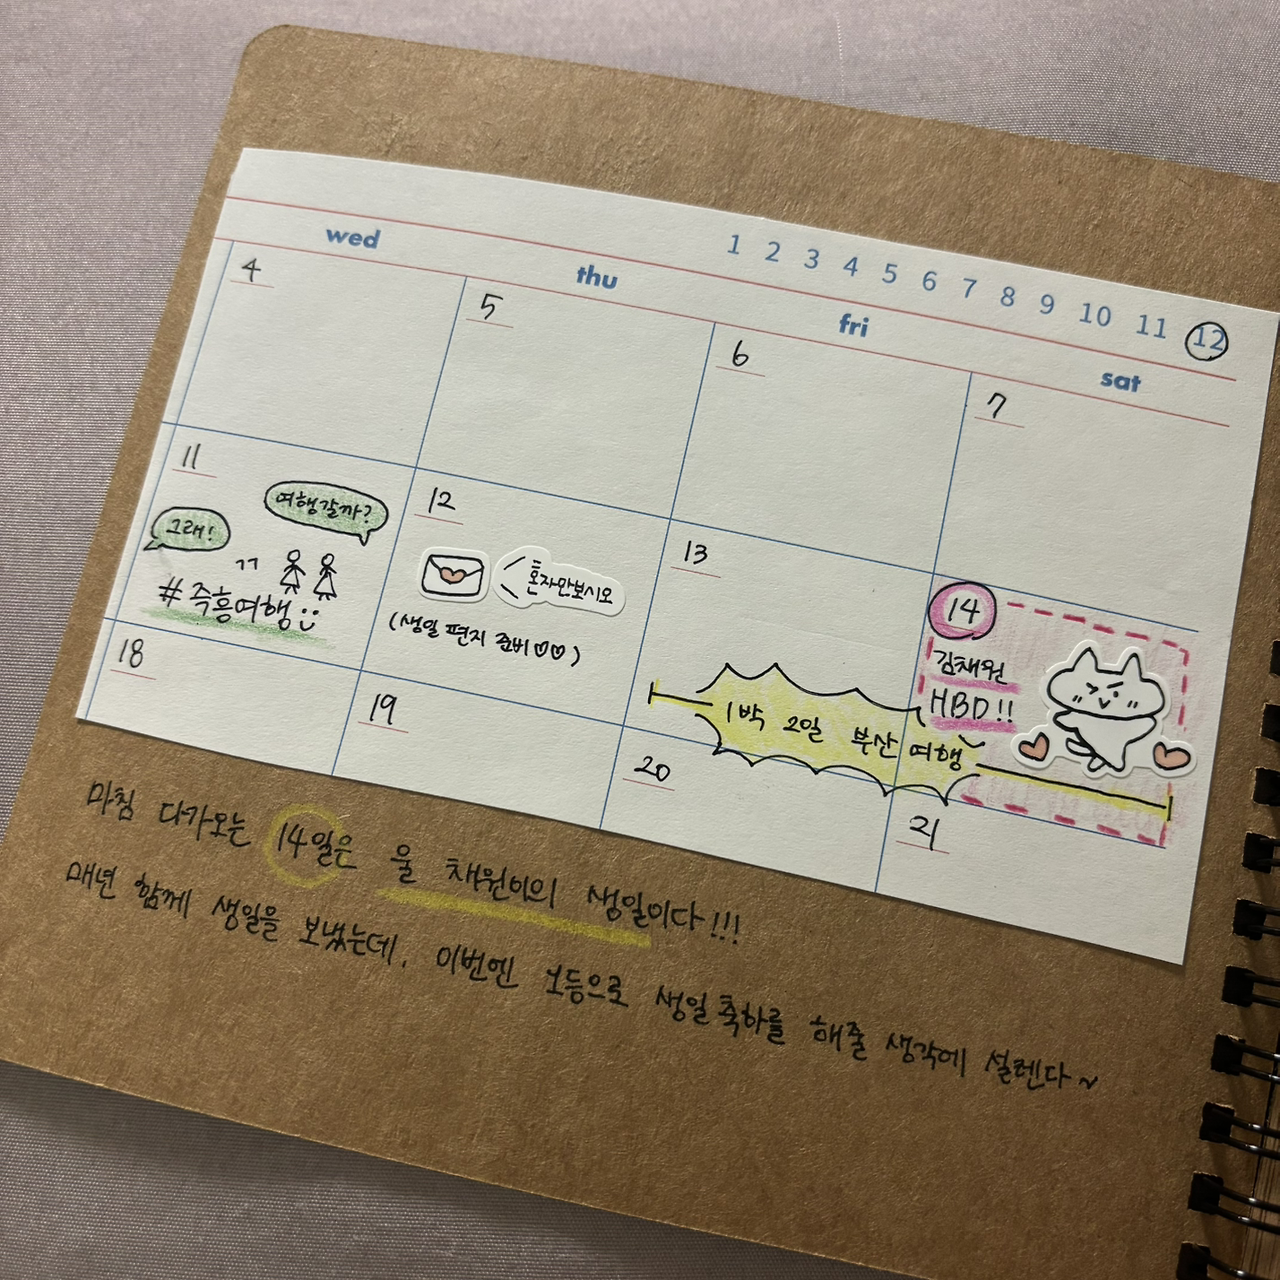 1 2 3 4 5 6 7 8 9 10 11 12
wed thu fri sat
4 5 6 7
11
여행갈까?
그래!
ㄱㄱ
#즉흥여행
12
혼자만보시오
(생일 편지 준비♡♡)
13
1박 2일 부산 여행
14
김채원
HBD!!
18 19 20 21
마침 다가오는 14일은 울 채원이의 생일이다!!!
매년 함께 생일을 보냈는데, 이번엔 1등으로 생일축하를 해줄 생각에 설렌다~